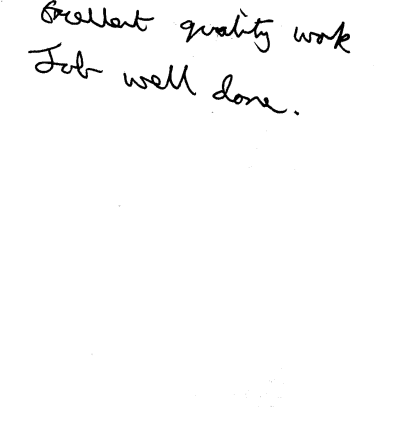 Excellent quality work
Job well done.